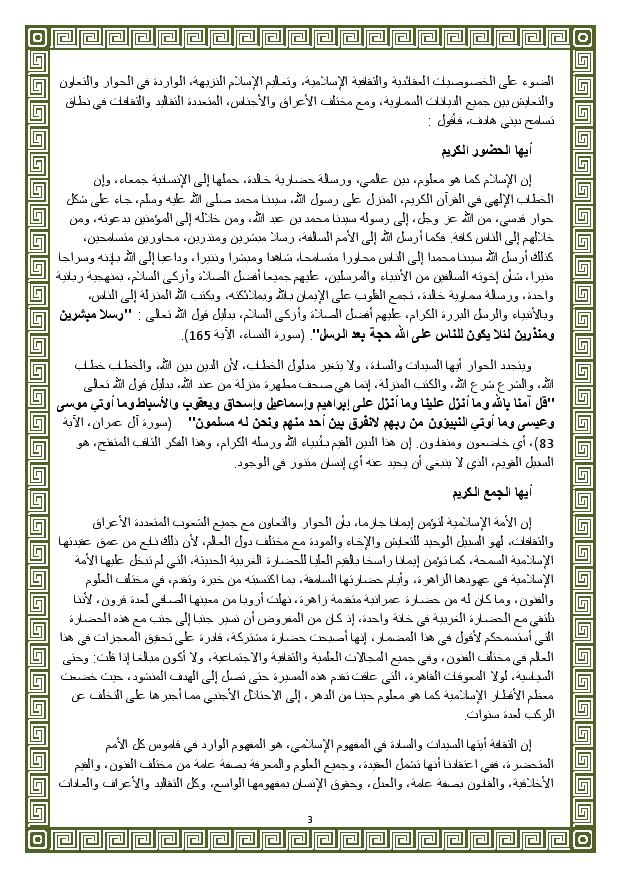 الضوء على الخصوصيات العقائدية والثقافية الإسلامية، وتعاليم الإسلام النزيهة، الواردة في الحوار والتعاون
والتعايش بين جميع الديانات السماوية، ومع مختلف الأعراق والأجناس، المتعددة التقاليد والثقافات في نطاق
تسامح ديني هادف، فأقول :
أيها الحضور الكريم
إن الإسلام كما هو معلوم، دين عالمي، ورسالة حضارية خالدة، حملها إلى الإنسانية جمعاء، وإن
الخطاب الإلهي في القرآن الكريم، المنزل على رسول الله، سيدنا محمد صلى الله عليه وسلم، جاء على شكل
حوار قدسي، من الله عز وجل، إلى رسوله سيدنا محمد بن عبد الله، ومن خلاله إلى المؤمنين بدعوته، ومن
خلالهم إلى الناس كافة. فكما أرسل الله إلى الأمم السالفة، رسلا مبشرين ومنذرين، محاورين متسامحين،
كذلك أرسل الله سيدنا محمدا إلى الناس محاورا متسامحا، شاهدا ومبشرا ونذيرا، وداعيا إلى الله بإذنه وسراجا
منيرا، شأن إخوته السالفين من الأنبياء والمرسلين، عليهم جميعا أفضل الصلاة وأزكى السلام، بمنهجية ربانية
واحدة، ورسالة سماوية خالدة، تجمع القلوب على الإيمان بالله وبملائكته، وبكتب الله المنزلة إلى الناس،
وبالأنبياء والرسل البررة الكرام، عليهم أفضل الصلاة وأزكى السلام، بدليل قول الله تعالى : "رسلا مبشرين
ومنذرين لئلا يكون للناس على الله حجة بعد الرسل". (سورة النساء، الآية 165).
ويتجدد الحوار أيها السيدات والسادة، ولا يتغير مدلول الخطاب، لأن الدين دين الله، والخطاب خطاب
الله، والشرع شرع الله، والكتب المنزلة، إنما هي صحف مطهرة منزلة من عند الله، بدليل قول الله تعالى
"قل آمنا بالله وما أنزل علينا وما أنزل على إبراهيم وإسماعيل وإسحاق ويعقوب والأسباط وما أوتي موسى
وعيسى وما أوتي النبيؤون من ربهم لانفرق بين أحد منهم ونحن له مسلمون" (سورة آل عمران، الآية
83)، أي خاضعون ومنقادون. إن هذا الدين القيم بأنبياء الله ورسله الكرام، وهذا الفكر الثاقب المتفتح، هو
السبيل القويم، الذي لا ينبغي أن يحيد عنه أي إنسان متنور في الوجود.
أيها الجمع الكريم
إن الأمة الإسلامية لتؤمن إيمانا جازما، بأن الحوار والتعاون مع جميع الشعوب المتعددة الأعراق
والثقافات، لهو السبيل الوحيد للتعايش والإخاء والمودة مع مختلف دول العالم، لأن ذلك نابع من عمق عقيدتها
الإسلامية السمحة، كما تؤمن إيمانا راسخا بالقيم العليا للحضارة الغربية الحديثة، التي لم تبخل عليها الأمة
الإسلامية في عهودها الزاهرة، وأيام حضارتها السامقة، بما اكتسبته من خبرة وتقدم، في مختلف العلوم
والفنون، وما كان له من حضارة عمرانية متقدمة زاهرة، نهلت أروبا من معينها الصافي لعدة قرون، لأننا
نلتقي مع الحضارة الغربية في خانة واحدة، إذ كان من المفروض أن نسير جنبا إلى جنب مع هذه الحضارة
التي أستسمحكم لأقول في هذا المضمار، إنها أصبحت حضارة مشتركة، قادرة على تحقيق المعجزات في هذا
العالم في مختلف الفنون، وفي جميع المجالات العلمية والثقافية والاجتماعية، ولا أكون مبالغا إذا قلت: وحتى
السياسية، لولا المعوقات القاهرة، التي عاقت تقدم هذه المسيرة حتى تصل إلى الهدف المنشود، حيث خضعت
معظم الأقطار الإسلامية كما هو معلوم حينا من الدهر، إلى الاحتلال الأجنبي مما أجبرها على التخلف عن
الركب لعدة سنوات.
إن الثقافة أيتها السيدات والسادة في المفهوم الإسلامي، هو المفهوم الوارد في قاموس كل الأمم
المتحضرة، ففي اعتقادنا أنها تشمل العقيدة، وجميع العلوم والمعرفة بصفة عامة من مختلف الفنون، والقيم
الأخلاقية، والقانون بصفة عامة، والعدل، وحقوق الإنسان بمفهومها الواسع، وكل التقاليد والأعراف والعادات
3